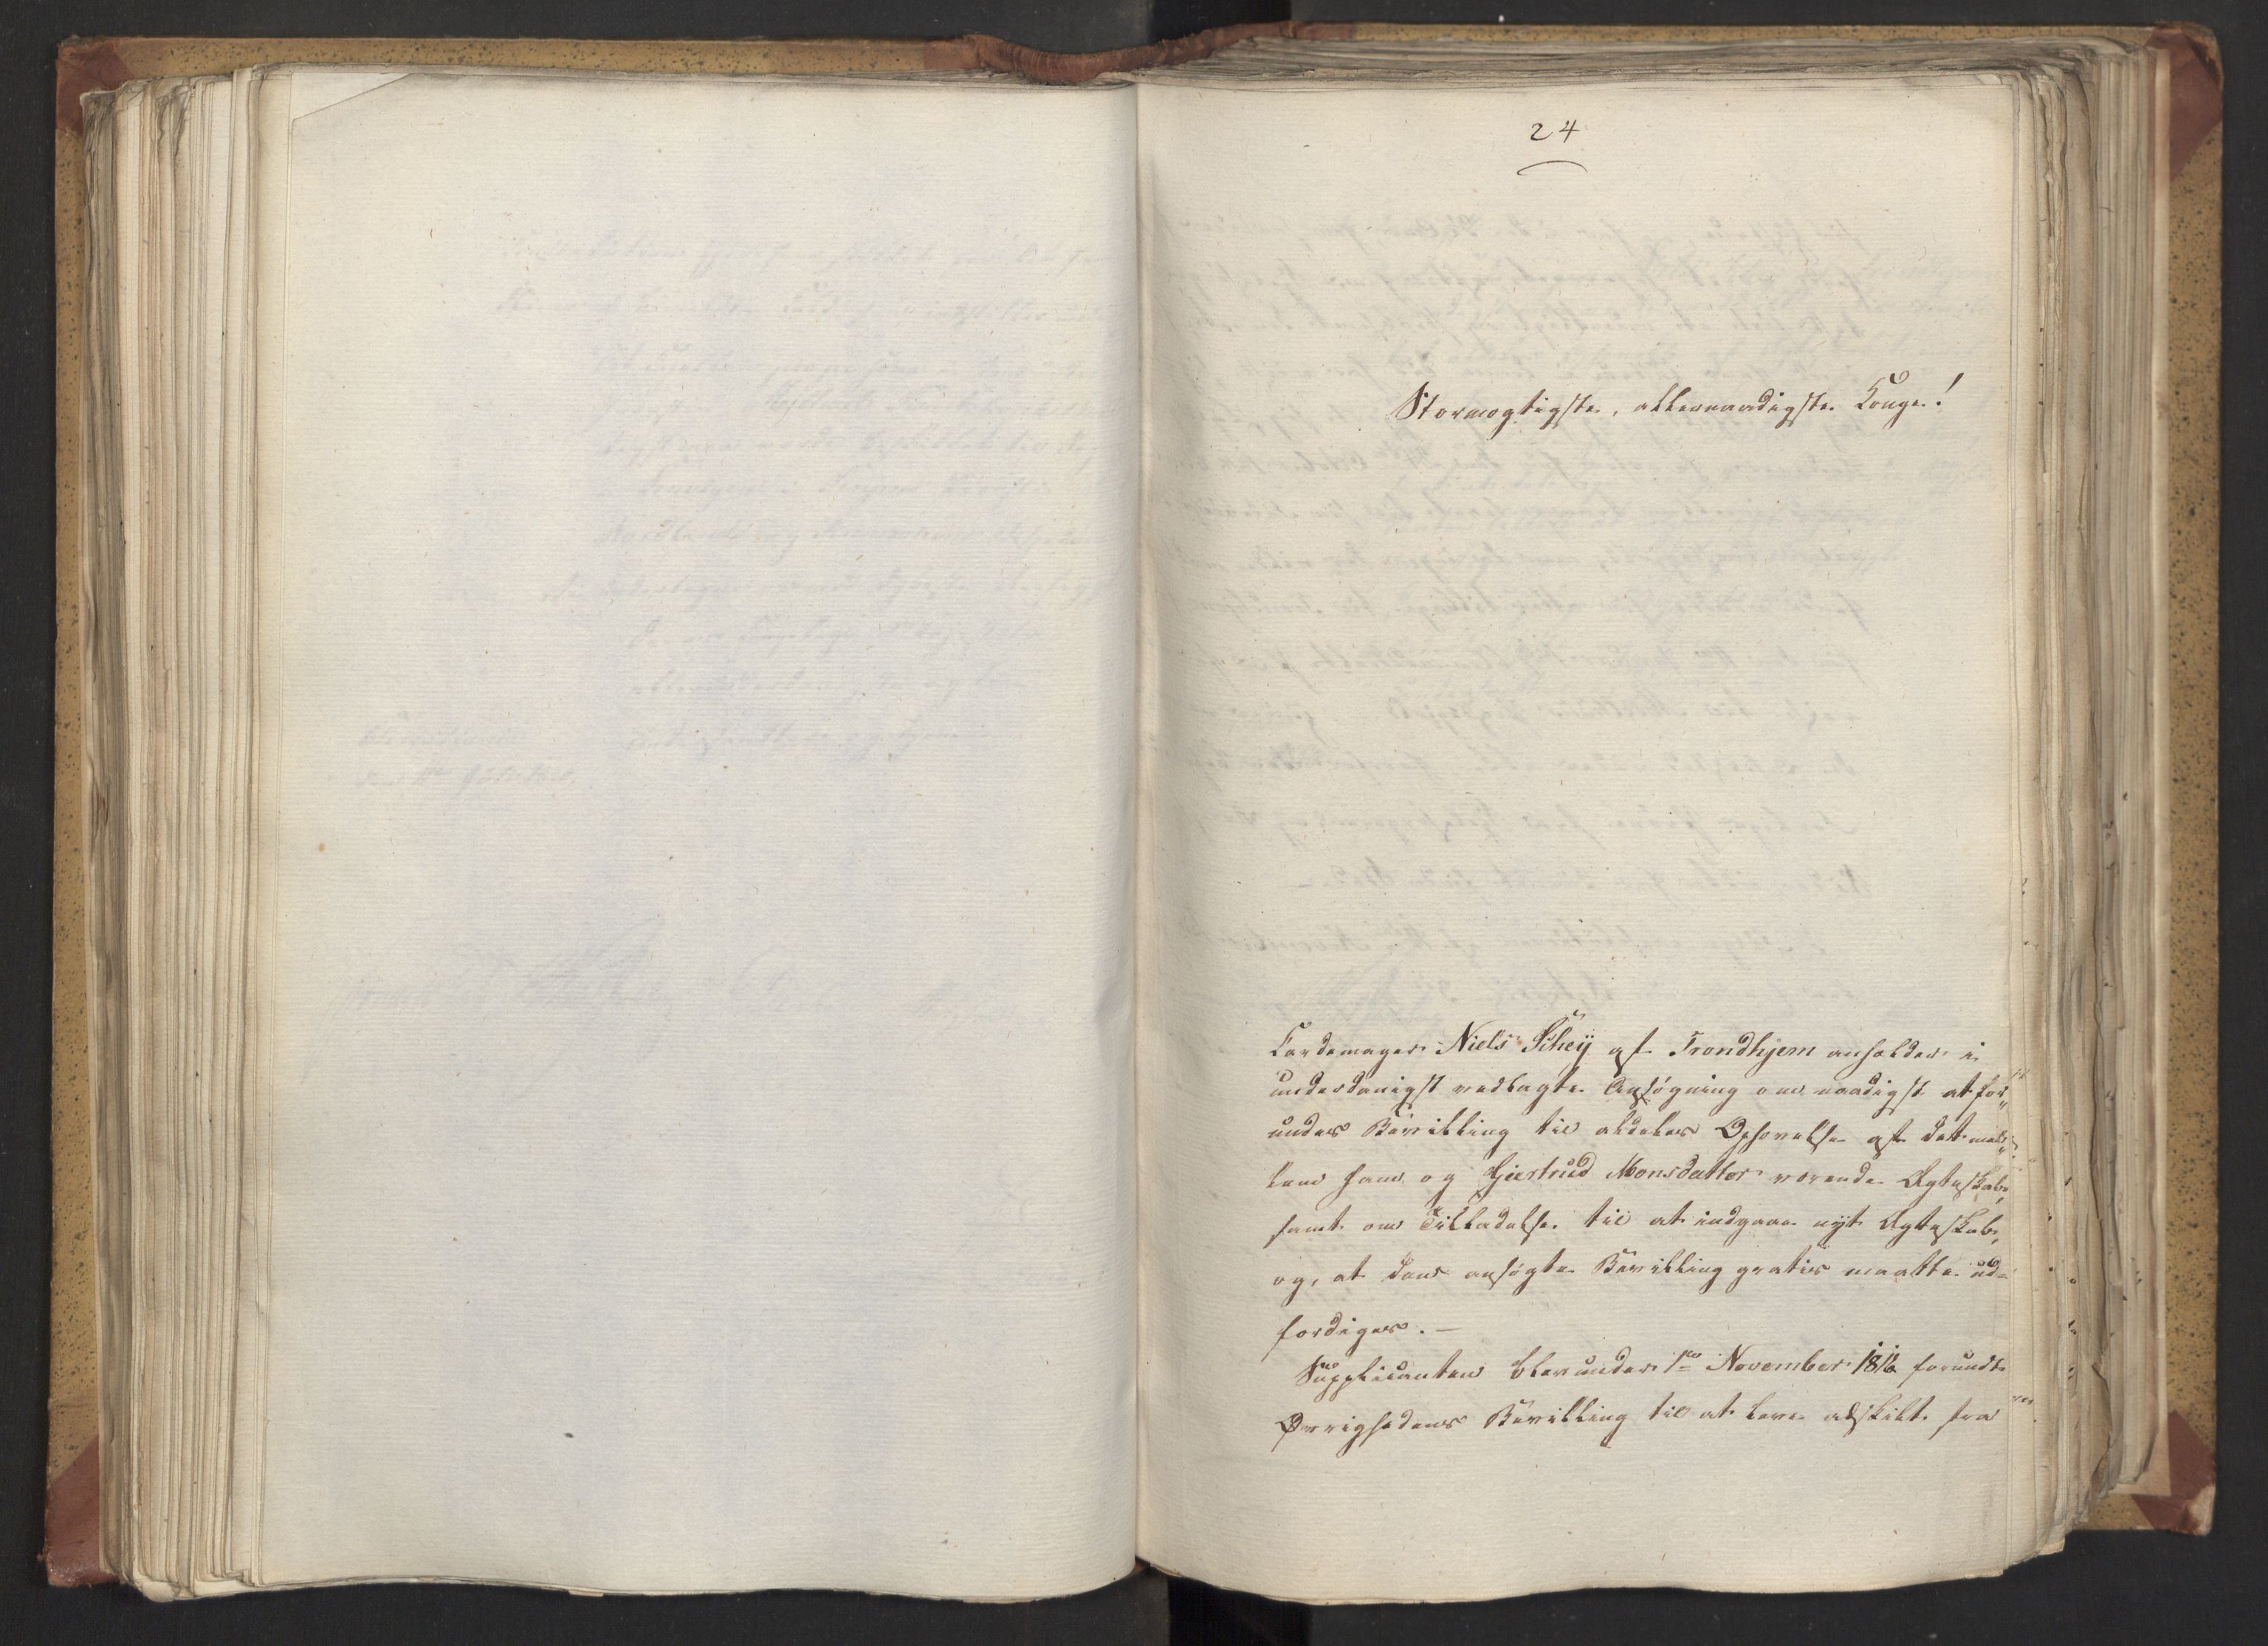 24
Stormægtigste, allernaadigste Konge!
Kardemager Niels Schey af Trondhjem anholder i
underdanigst vedlagte Ansøgning om naadigst at for„
undes Bevilling til aldeles Ophævelse af det mel„
lem ham og Giertrud Monsdatter værende Ægteskab,
samt om Tilladelse til at indgaae nyt Ægteskab,
og, at den ansøgte Bevilling gratis maatte ud=
færdiges. —
Supplicanten blev under 1ste November 1816 forundt
Øvrighedens Bevilling til at leve adskilt fra